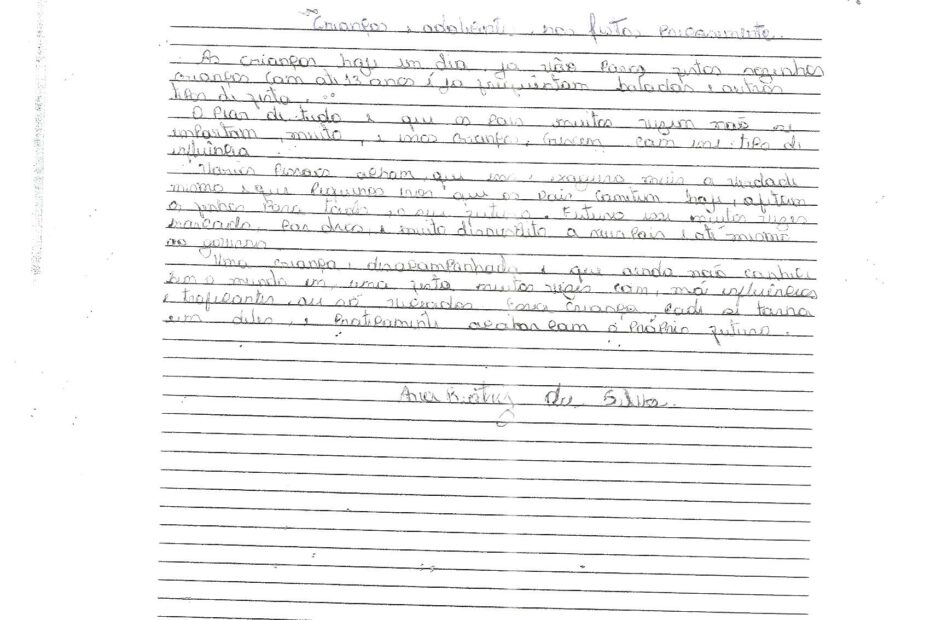 Crianças e adolienti, nas festas precocemente.
As crianças hoje em dia, ja vão para festas sozinhas
crianças com até 13 anos é ja frequentam baladas e outros
tipos de festa.
O pior de tudo e que os pais muitas vezes não se
importam, muito, e crianças, crescem com esse tipo de
influência.
Varias pessoas acham que isso e exagero mais a verdade
mesmo e que pequenos erros que os pais cometem hoje, afetam
os filhos para tarde, o seu futuro. Futuro esse muitas vezes
marcado, por e muito a seus pais e até mesmo
ao governo.
Uma criança, desacompanhada e que ainda não conhece
bem o mundo em, uma festa muitas vezes com, má influências
e traficantes, ou até viciados. Essa criança, pode se torna
um deles, e praticamente acabar com o próprio futuro.
Ana Beatriz da Silva.